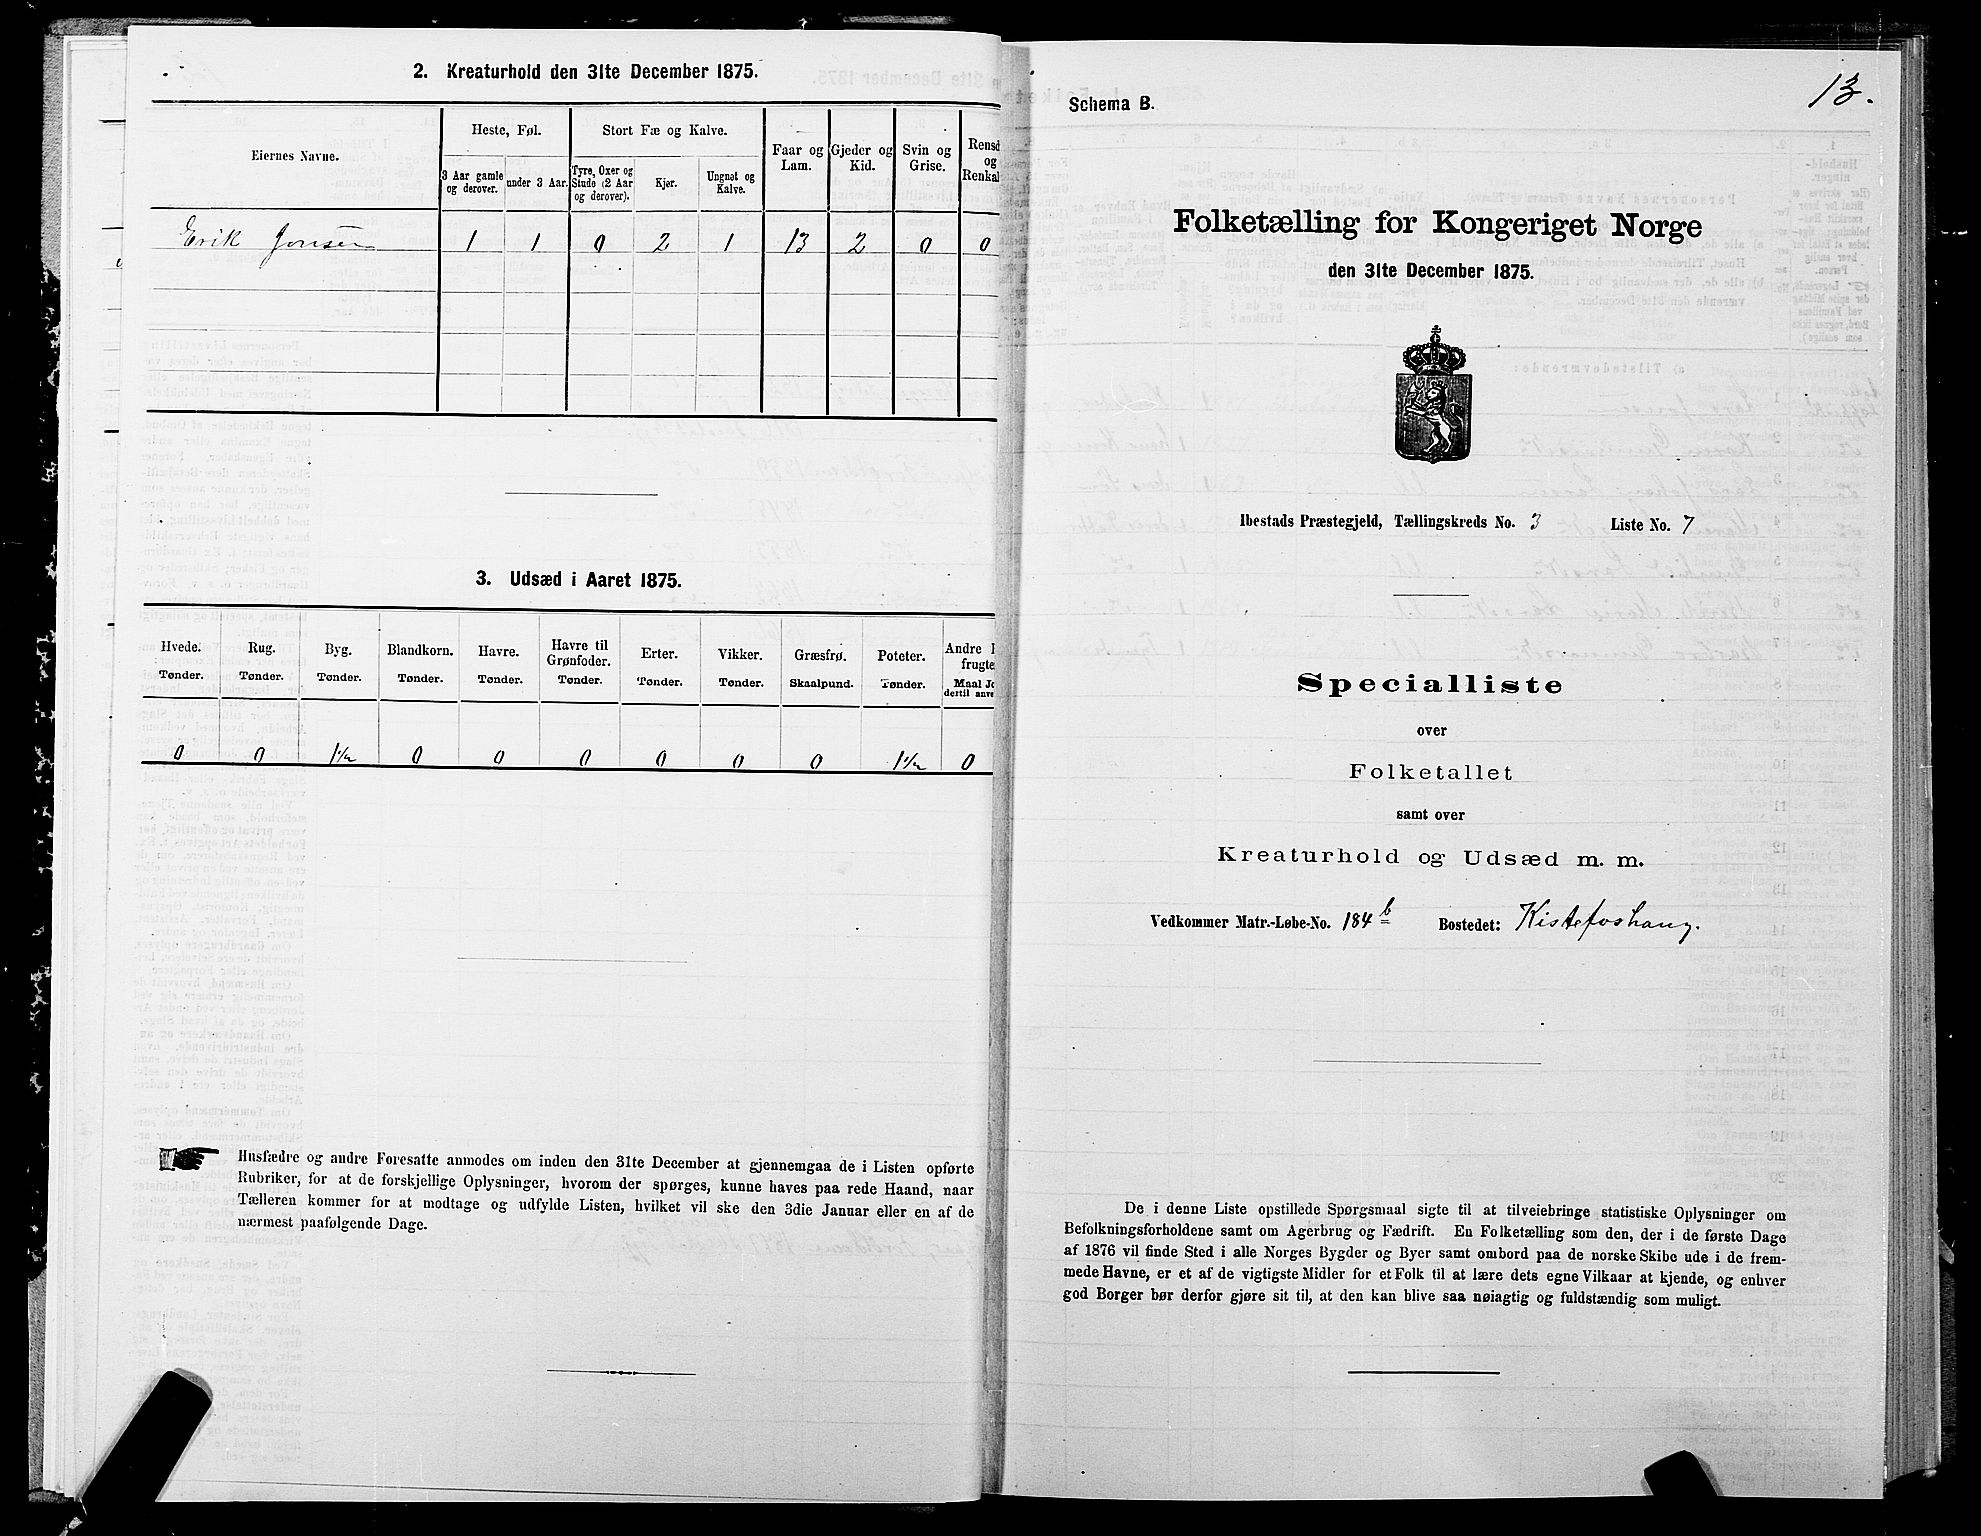 2. Kreaturhold den 31te December 1875.
Eiernes Navne.
Heste, Føl.
3 Aar gamle og derover.
under 3 Aar.
Stort Fæ og Kalve.
Tyre, Oxer og Stude (2 Aar og derover).
Kjør.
Ungnøt og Kalve.
Faar og Lam.
Gjeder og Kid.
Svin og Grise.
Rensd
og
Renkal
Erik Jonsen 1 1 0 2 1 13 2 0 0
3. Udsæd i Aaret 1875.
Hvede. Rug. Byg. Blandkorn. Havre. Havre til Grønfoder. Erter. Vikker. Græsfrø. Poteter. Andre
frugte
Tønder. Tønder. Tønder. Tønder. Tønder. Tønder. Tønder. Tønder. Skaalpund. Tønder. Maal Jo
dertil anve
0 0 1 1/2 0 0 0 0 0 0 1 1/2 0
Husfædre og andre Foresatte anmodes om inden den 31te December at gjennemgaa de i Listen opførte
Rubriker, for at de forskjellige Oplysninger, hvorom der spørges, kunne haves paa rede Haand, naar
Tælleren kommer for at modtage og udfylde Listen, hvilket vil ske den 3die Januar eller en af de
nærmest paafølgende Dage.
13.
Schema B.
Folketælling for Kongeriget Norge
den 31te December 1875.
Ibestads Præstegjeld, Tællingskreds No. 3 Liste No. 7
Specialliste
over
Folketallet
samt over
Kreaturhold og Udsæd m. m.
Vedkommer Matr.-Løbe-No. 184 b Bostedet: Kistefoshaug.
De i denne Liste opstillede Spørgsmaal sigte til at tilveiebringe statistiske Oplysninger om
Befolkningsforholdene samt om Agerbrug og Fædrift. En Folketælling som den, der i de første Dage
af 1876 vil finde Sted i alle Norges Bygder og Byer samt ombord paa de norske Skibe ude i de frem-
mede Havne, er et af de vigtigste Midler for et Folk til at lære dets egne Vilkaar at kjende, og enhver
god Borger bør derfor gjøre sit til, at den kan blive saa nøiagtig og fuldstændig som muligt.